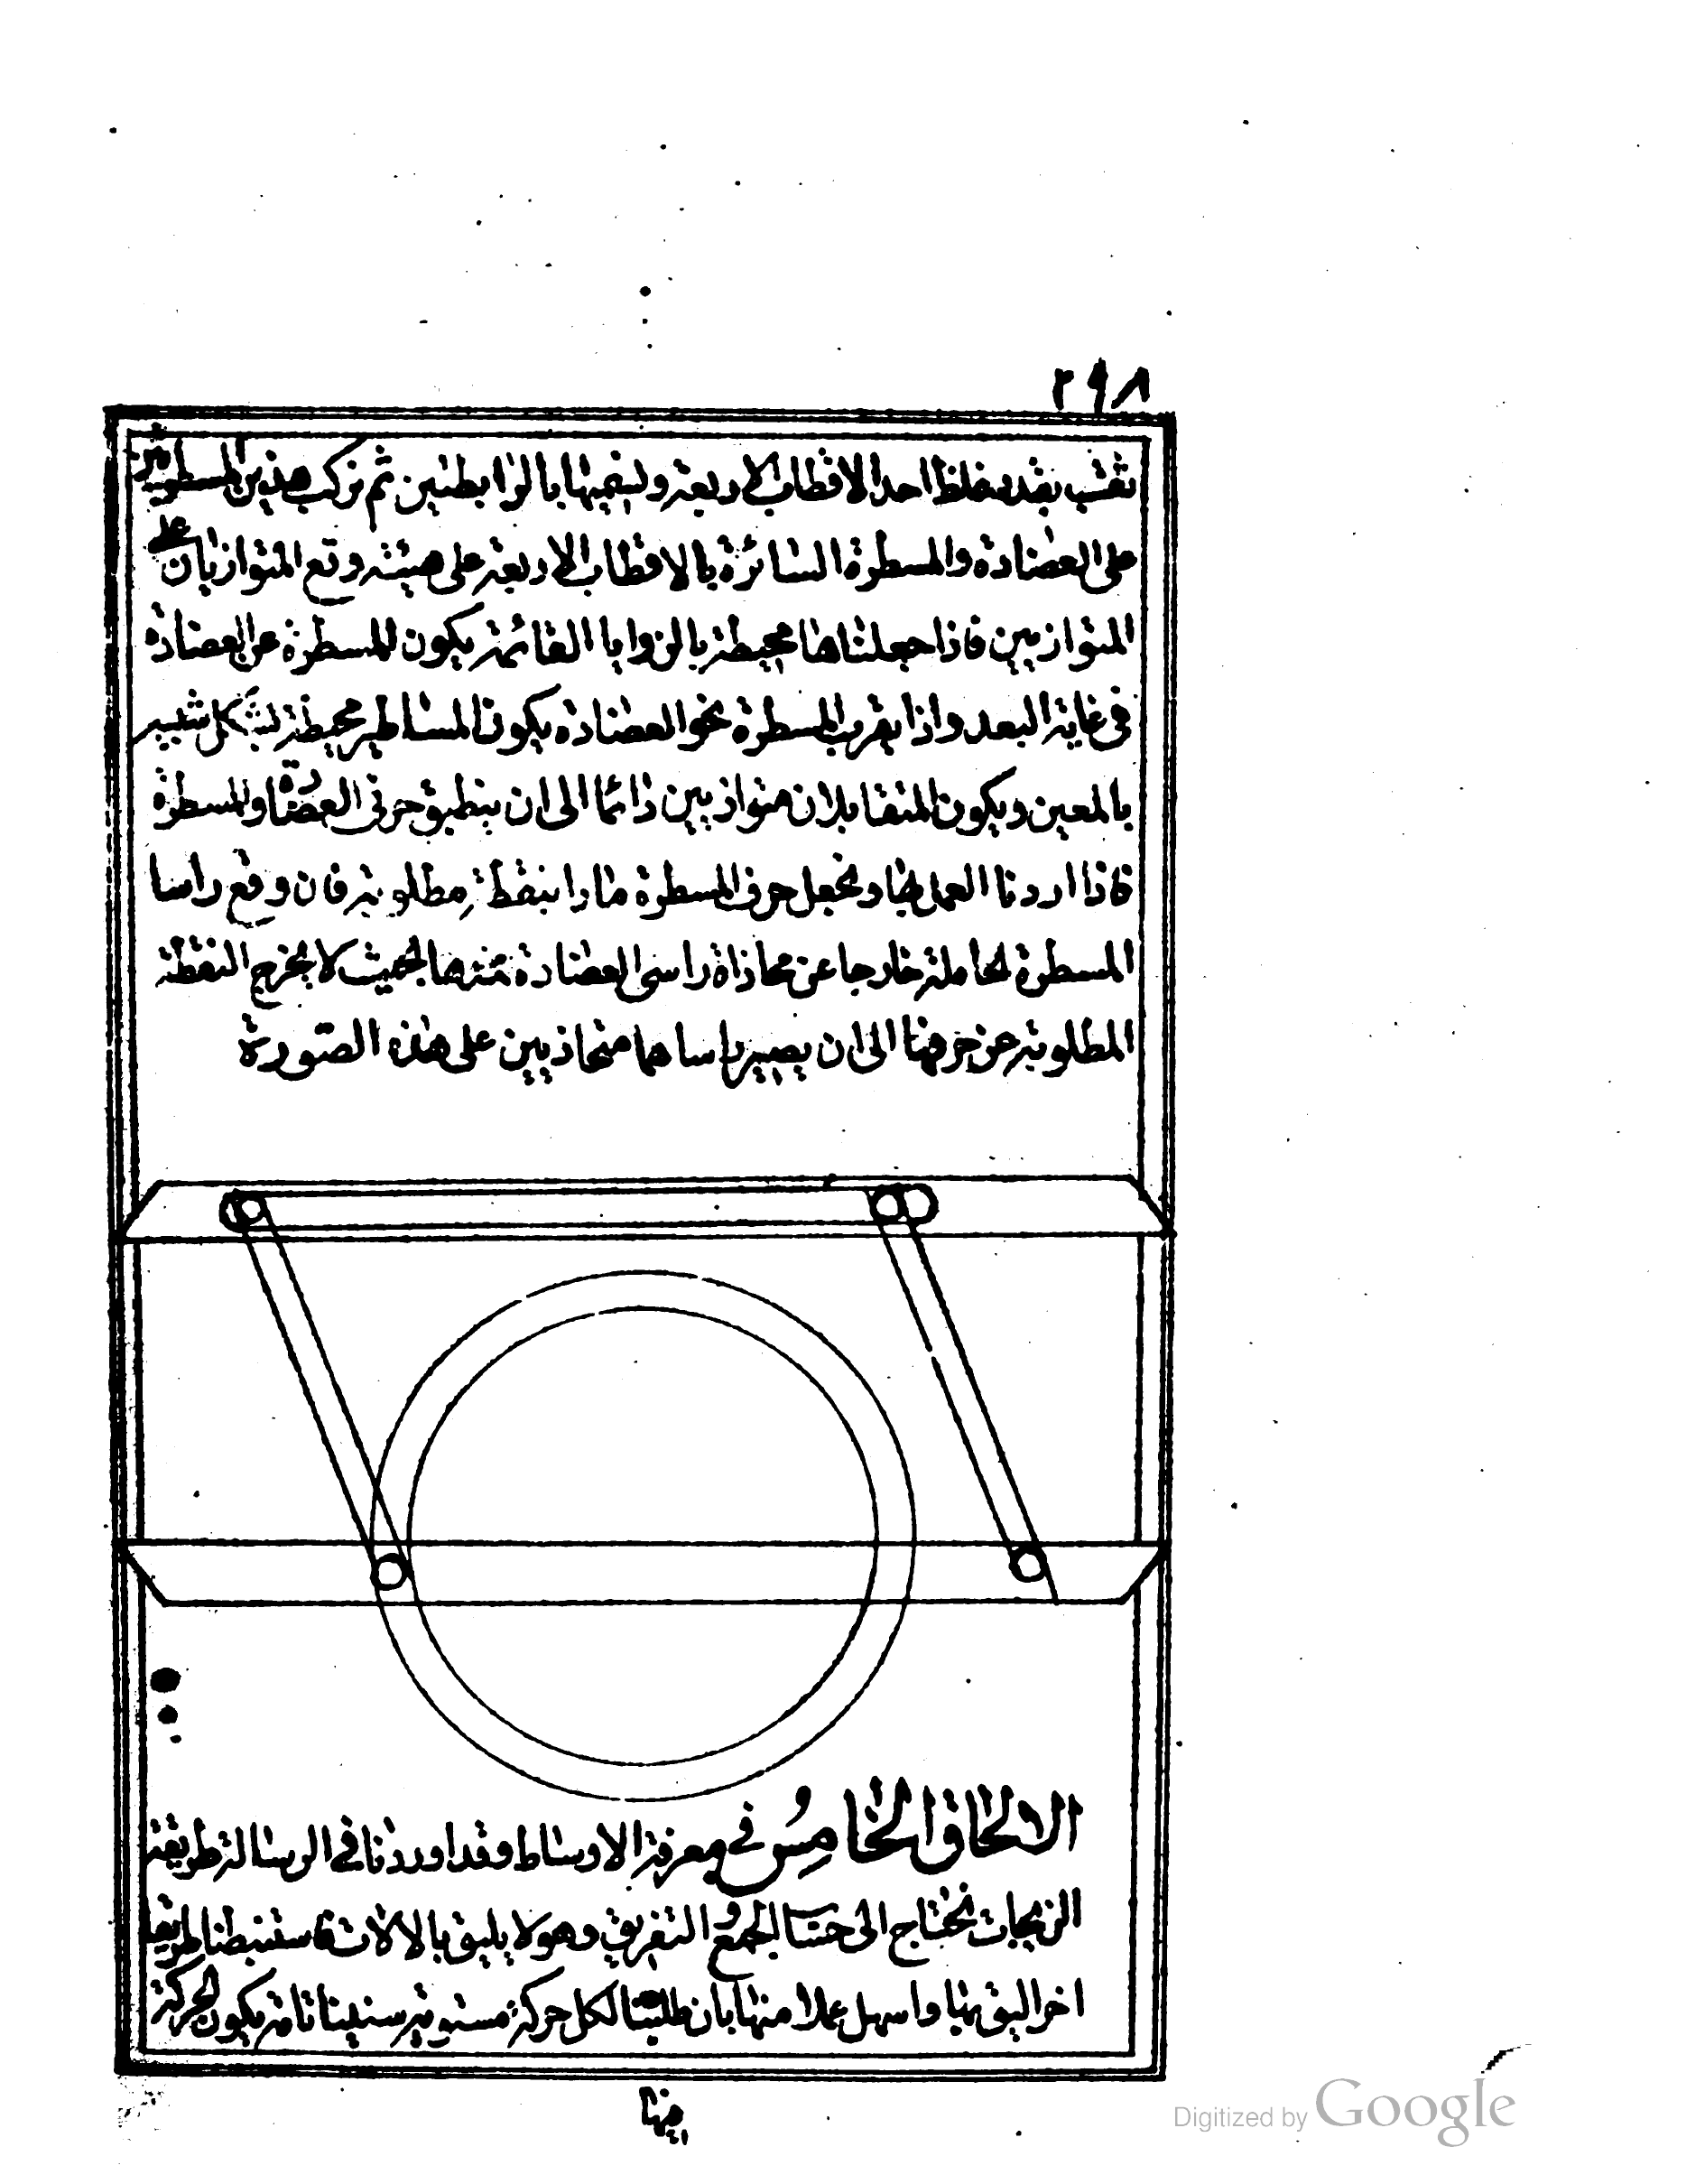 ٢٩٨
نثقب بقدر غلظ احد الاقطاب الاربعة ونسميها بالرابطتين ثم نركب هذين المسطرتين
على العضادة والمسطرة السائرة بالاقطاب الاربعة على هيئته وقع المتوازيان على
المتوازيين فاذا جعلناها محيطة بالزوايا القائمة يكون للمسطرة عن العضادة
فى غاية البعد واذا يقرب المسطرة نحو العضادة يكون المساطير محيطة بشكل شبيه
بالمعين ويكون المتقابلان متوازيين دائما الى ان ينطبق حرفى العضادة والمسطرة
فاذا اردنا العمل بها ونجعل حرف المسطرة مارا بنقطة مطلوبة فان وقع راسا
المسطرة الحاملة خارجا عن محاذاة راسى العضادة بحيث لا يخرج النقطة
المطلوبة عن حرفها الى ان يصير راساهما متحاذيين على هذه الصورة
الالحاق الخامس فى معرفة الاوساط وقد اوردنا فى الرسالة طريقة
الزيجات نحتاج الى حساب الجمع و التفريق وهو لا يليق بالالات فاستنبطنا طريقا
اخر اليق بها واسهل عملا منها بان طلبنا لكل حركة مستوية سنينا تامة يكون الحركة
فيها
Digitized by Google